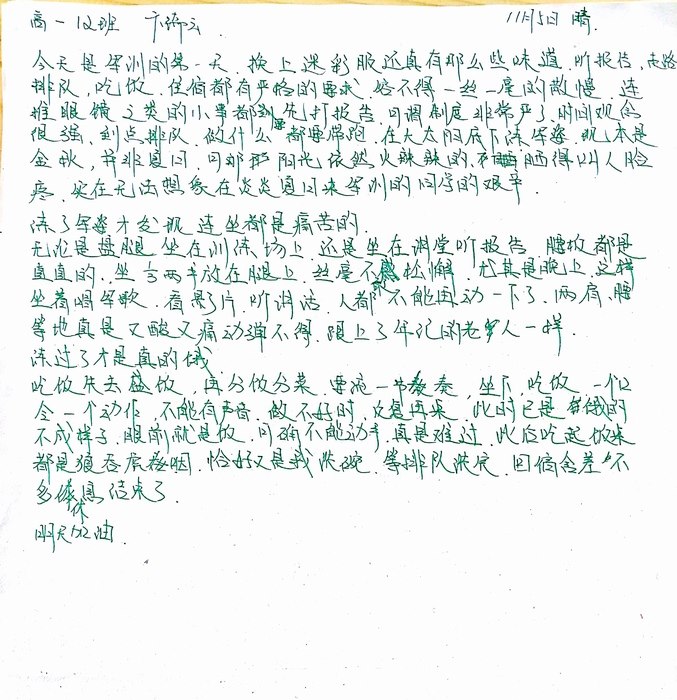 高一 12班 11月5日 晴
今天是军训的第一天. 换上迷彩服还真有那么些味道. 听报告, 走路
排队, 吃饭. 住宿都有严格的要求 容不得一丝一毫的散慢. 连
推眼镜之类的小事都要先打报告. 可谓制度非常严了. 时间观念
很强. 到点排队. 做什么都要常跑. 在大太阳底下练军姿. 现本是
金秋, 并非夏日. 可那阳光依然火辣辣的. 晒得叫人脸
疼. 实在无法想象在炎炎夏日来军训的同学的艰辛.
练了军姿才发现 连坐都是痛苦的.
无论是盘腿坐在训练场上. 还是坐在讲堂听报告 腰板都是
直直的. 坐 两手放在腿上. 丝毫不敢松懈. 尤其是晚上. 这样
坐着唱军歌. 看影片. 听讲话. 人都不能再动一下了. 两肩. 腰
等地真是又酸又痛动弹不得. 跟上了年纪的老人一样.
练过了才是真的饿.
吃饭先去盛饭, 再分饭分菜. 要统一节奏, 坐下, 吃饭. 一个口
令一个动作, 不能有声音. 做不好时, 反复再来. 此时已是饿的
不成样子. 眼前就是饭. 可确不能动手. 真是难过. 此后吃起饭来
都是狼吞虎咽. 恰好又是我洗碗. 等排队洗完. 回宿舍差不
多休息结束了.
明天加油.